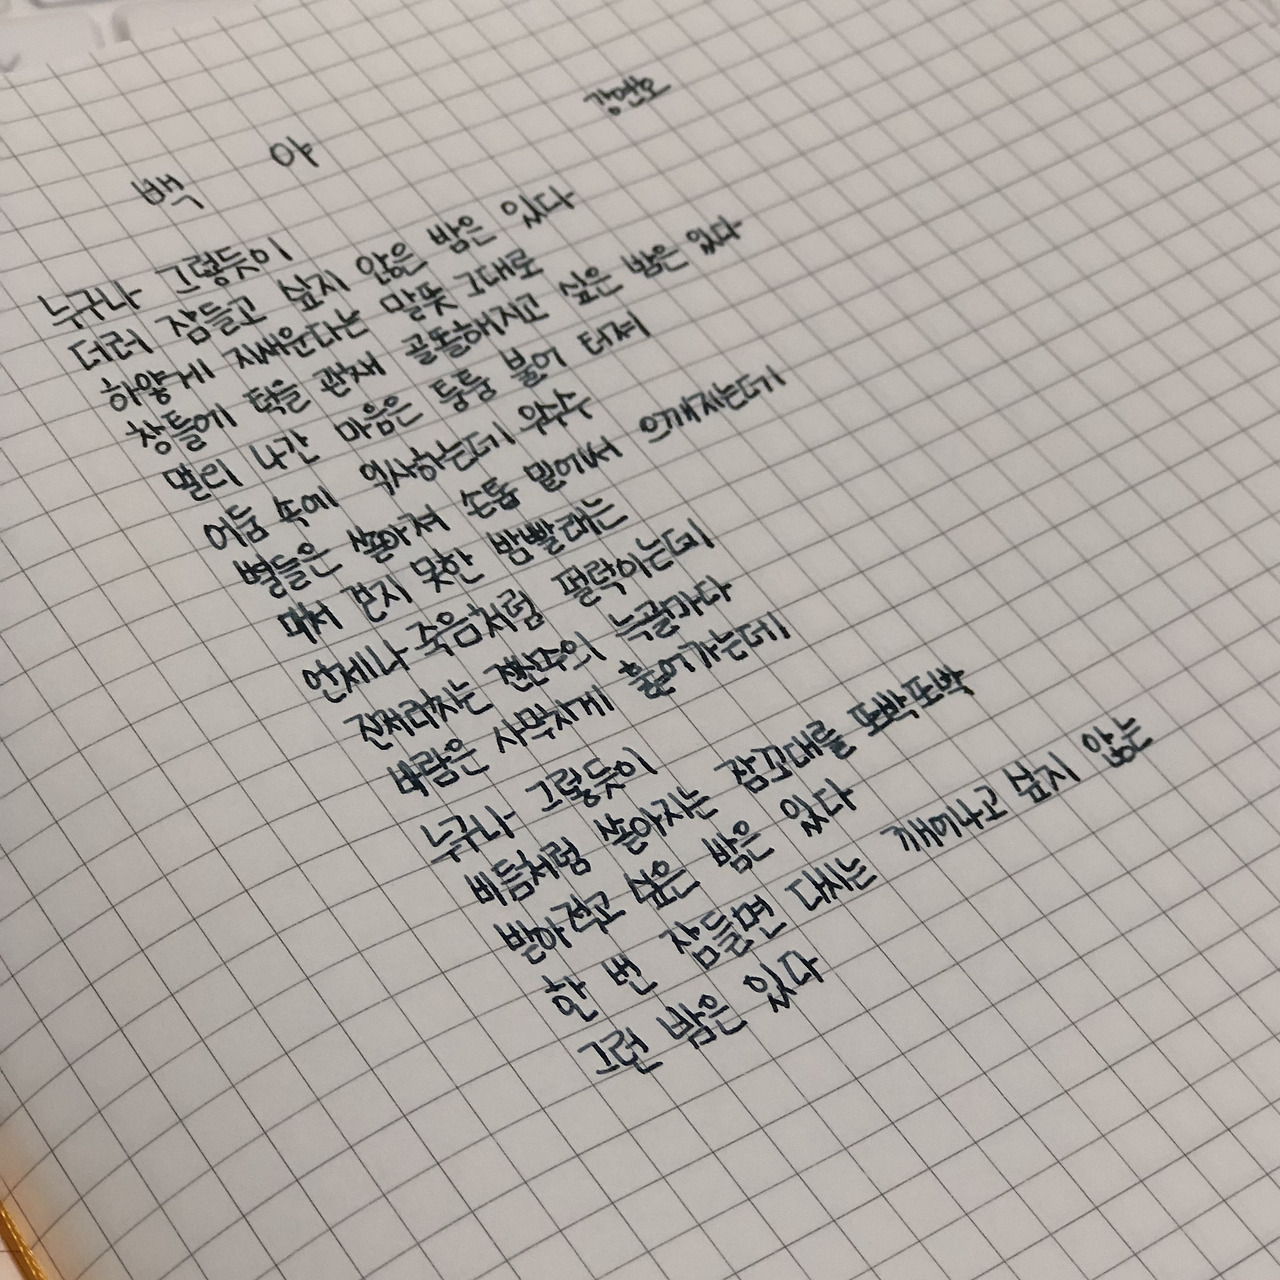 백 야
강연호
누구나 그렇듯이
더러 잠들고 싶지 않은 밤은 있다
하얗게 지새운다는 말뜻 그대로
창틀에 턱을 괸채 골똘해지고 싶은 밤은 있다
멀리 나간 마음은 퉁퉁 불어 터져
어둠 속에 익사하는데 우수수
별들은 쏟아져 손톱 밑에서 으깨지는데
미처 걷지 못한 밤빨래는
언제나 죽음처럼 펄럭이는데
진저리치는 전신주의 늑골마다
바람은 사막지게 훑어가는데
누구나 그렇듯이
비듬처럼 쏟아지는 잠꼬대를 또박또박
받아적고 싶은 밤은 있다
한 번 잠들면 다시는 깨어나고 싶지 않은
그런 밤은 있다